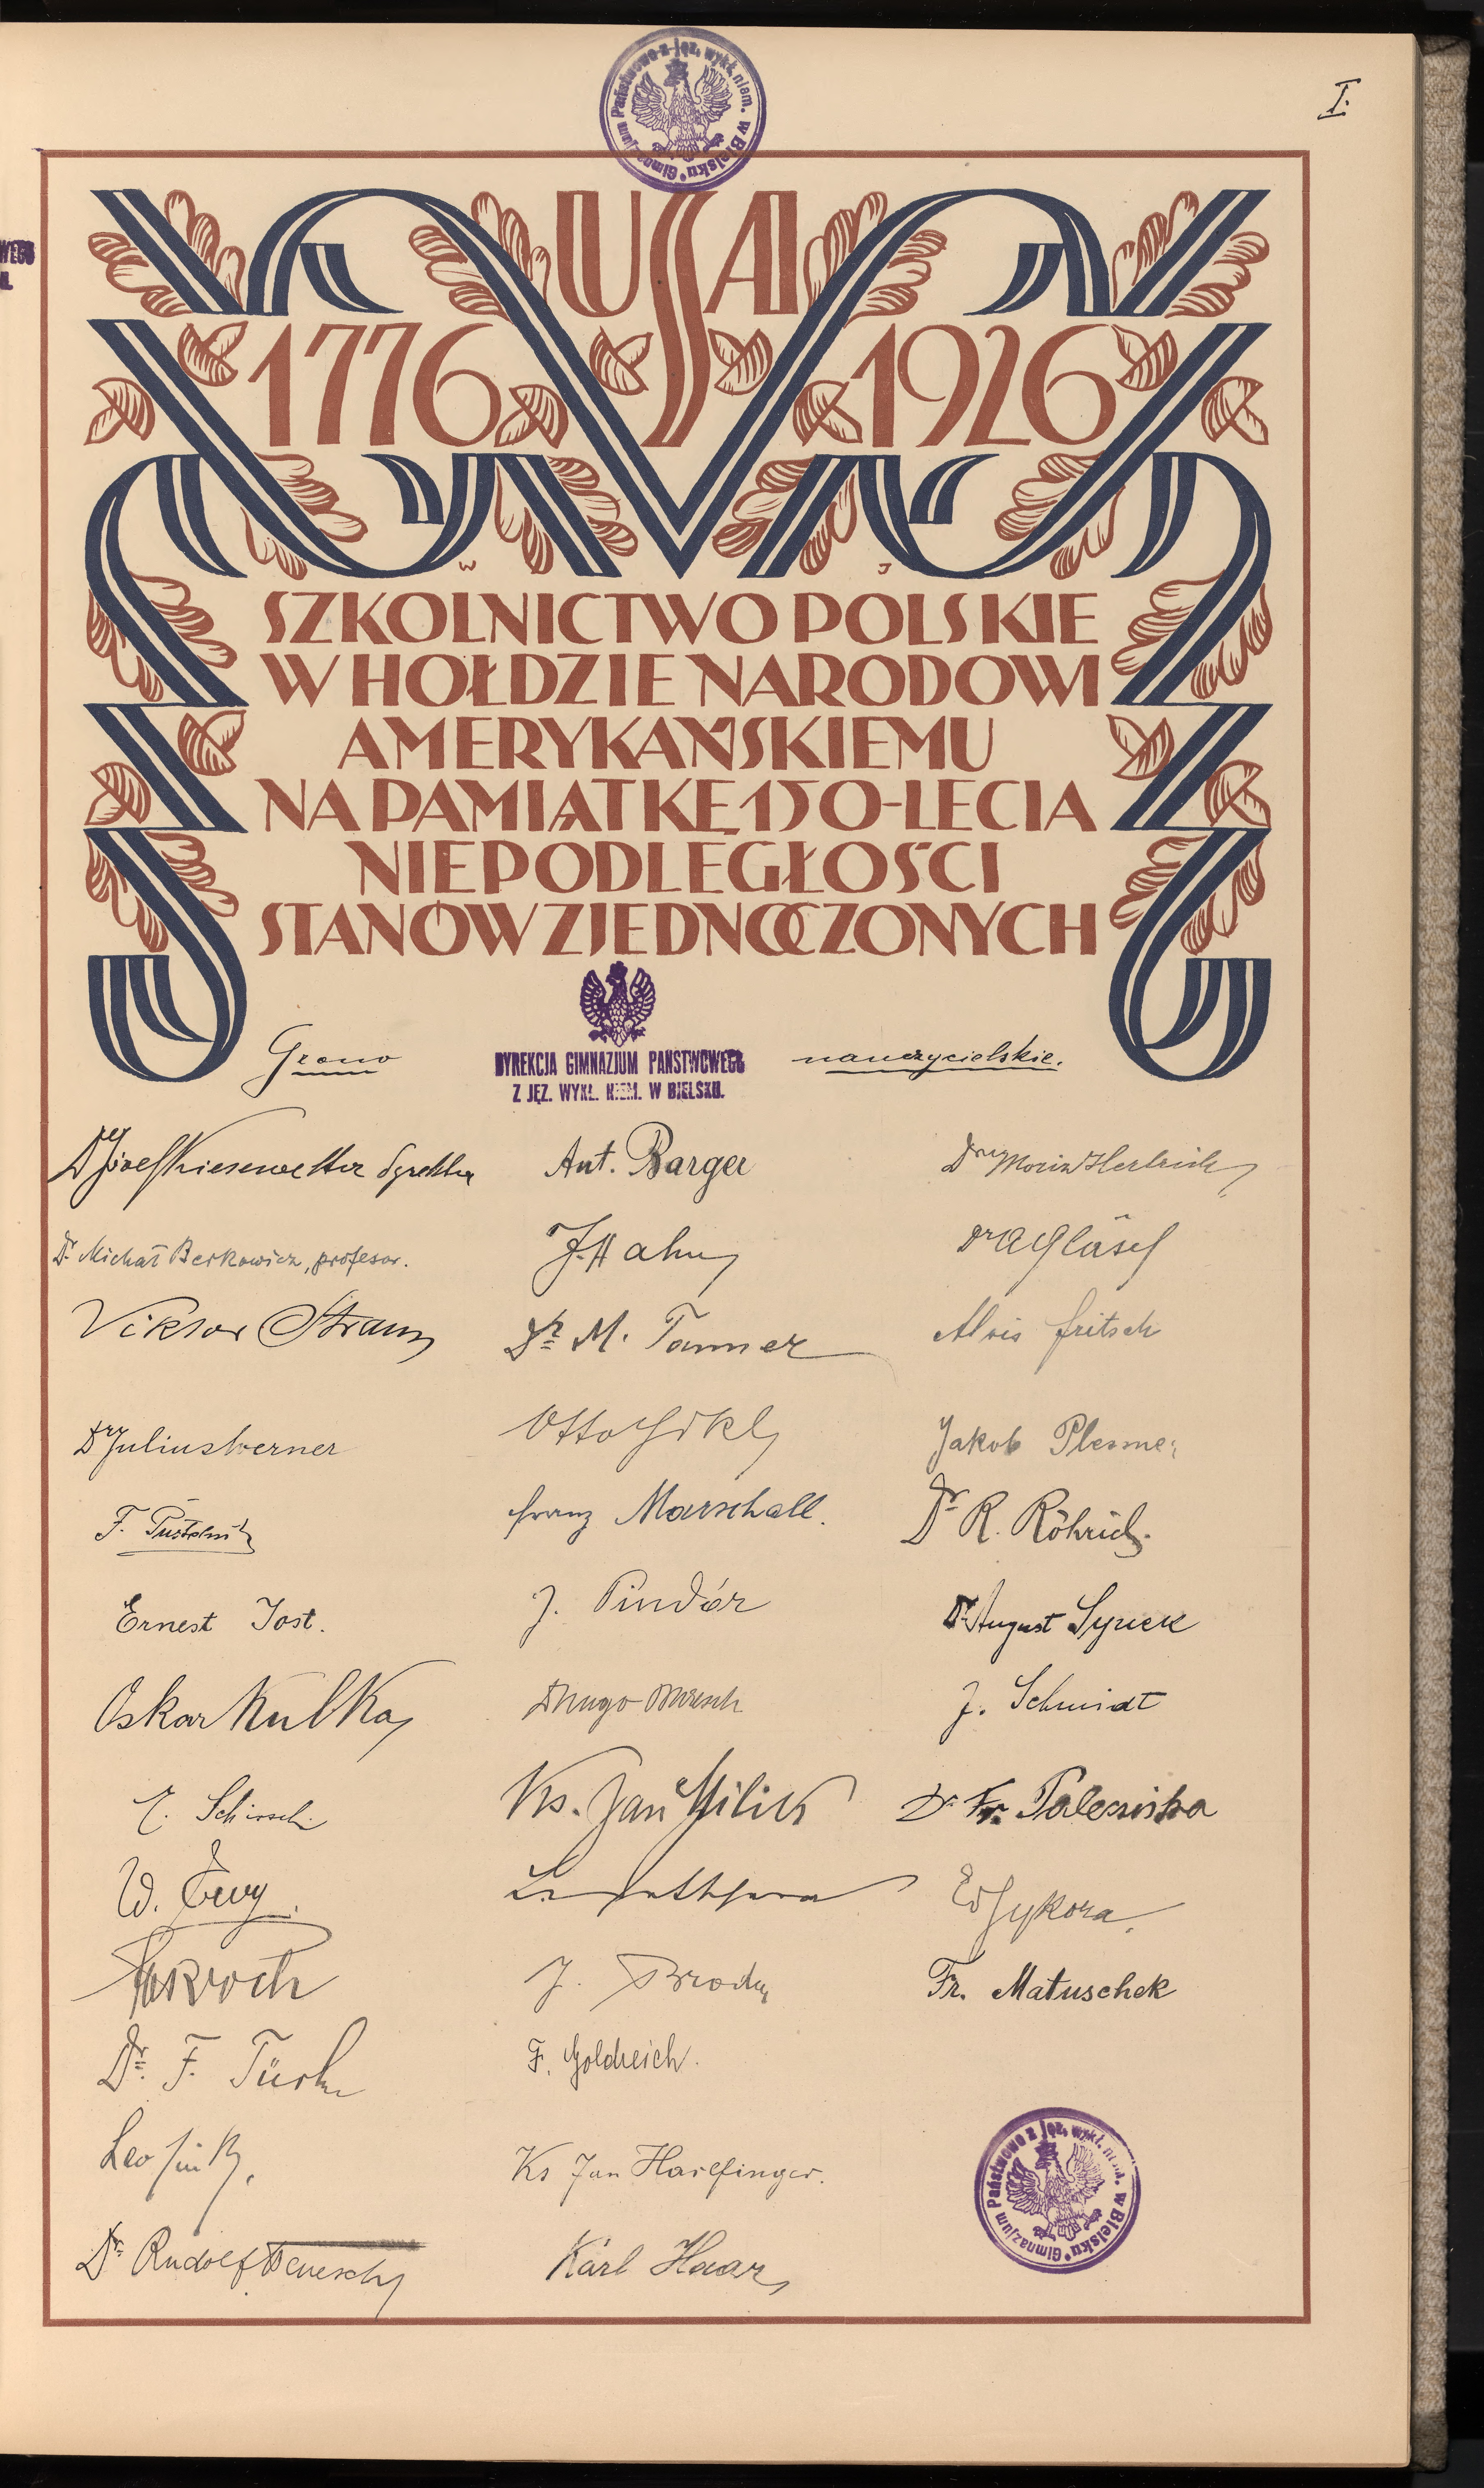 Gimnazjum Państwowe z jęz. wykł. niem. w Bielsku
I.
WEGO
USA
1776 1926
W J
SZKOLNICTWO POLSKIE
W HOŁDZIE NARODOWI
AMERYKAŃSKIEMU
NA PAMIĄTKĘ 150-LECIA
NIEPODLEGŁOŚCI
STANÓW ZJEDNOCZONYCH
Grono nauczycielskie.
DYREKCJA GIMNAZJUM PAŃSTWOWEGO
Z JĘZ. WYKŁ. NIEM. W BIELSKU.
Dr Józef Kiesewetter dyrektor
Ant. Barger
Dr Moriz
Dr. Michał Berkowicz, profesor.
J. Hahn
Dr A Gläsel
Viktor Strauss
Dr M. Tanner
Alois Fritsch
Dr Julius Werner
Otto
Jakob Plessner
F. Pustelnik
Franz Marschall.
Dr R. Röhrich.
Ernest Jost.
J. Pindór
Dr August
Oskar Kulka
Dr Hugo
J. Schmidt
E.
Ks. Jan Milik
Dr. Fr.
W.
Ed Sykora.
J. Brody
Fr. Matuschek
Dr. F. Türk
F. Goldreich.
Leo
Ks Jan Harlfinger.
Gimnazjum Państwowe z jęz. wykł. niem. w Bielsku
Dr. Rudolf
Karl Haar